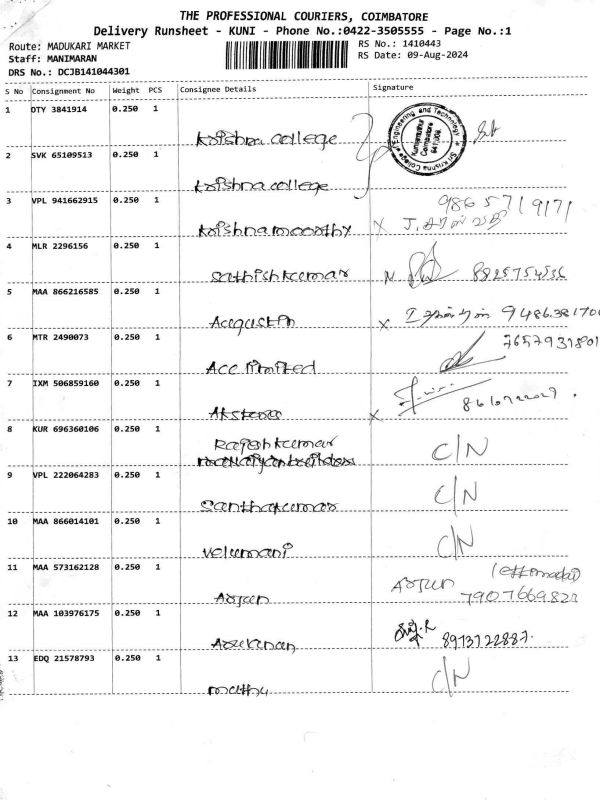 THE PROFESSIONAL COURIERS, COIMBATORE
Delivery Runsheet - KUNI - Phone No.:0422-3505555 - Page No.:1
Route: MADUKARI MARKET
RS No.: 1410443
Staff: MANIMARAN
RS Date: 09-Aug-2024
DRS No.: DCJB141044301
S No Consignment No Weight PCS Consignee Details Signature
1 OTY 3841914 0.250 1 krishna college
Sri Krishna College of Engineering and Technology Kuniyamuthur Coimbatore
2 SVK 65109513 0.250 1 krishna college
3 VPL 941662915 0.250 1 krishnamoorthy
9865719171
4 MLR 2296156 0.250 1 sathishkumar 8825754536
5 MAA 866216585 0.250 1 Augustin
6 MTR 2490073 0.250 1 Acc limited
7 IXM 506859160 0.250 1
8 KUR 696360106 0.250 1 Rajeshkumar C/N
9 VPL 222064283 0.250 1 santhakumar C/N
10 MAA 866014101 0.250 1 velumani C/N
11 MAA 573162128 0.250 1 Arjun Arjun
12 MAA 103976175 0.250 1 8973722887.
13 EDQ 21578793 0.250 1 mathu C/N